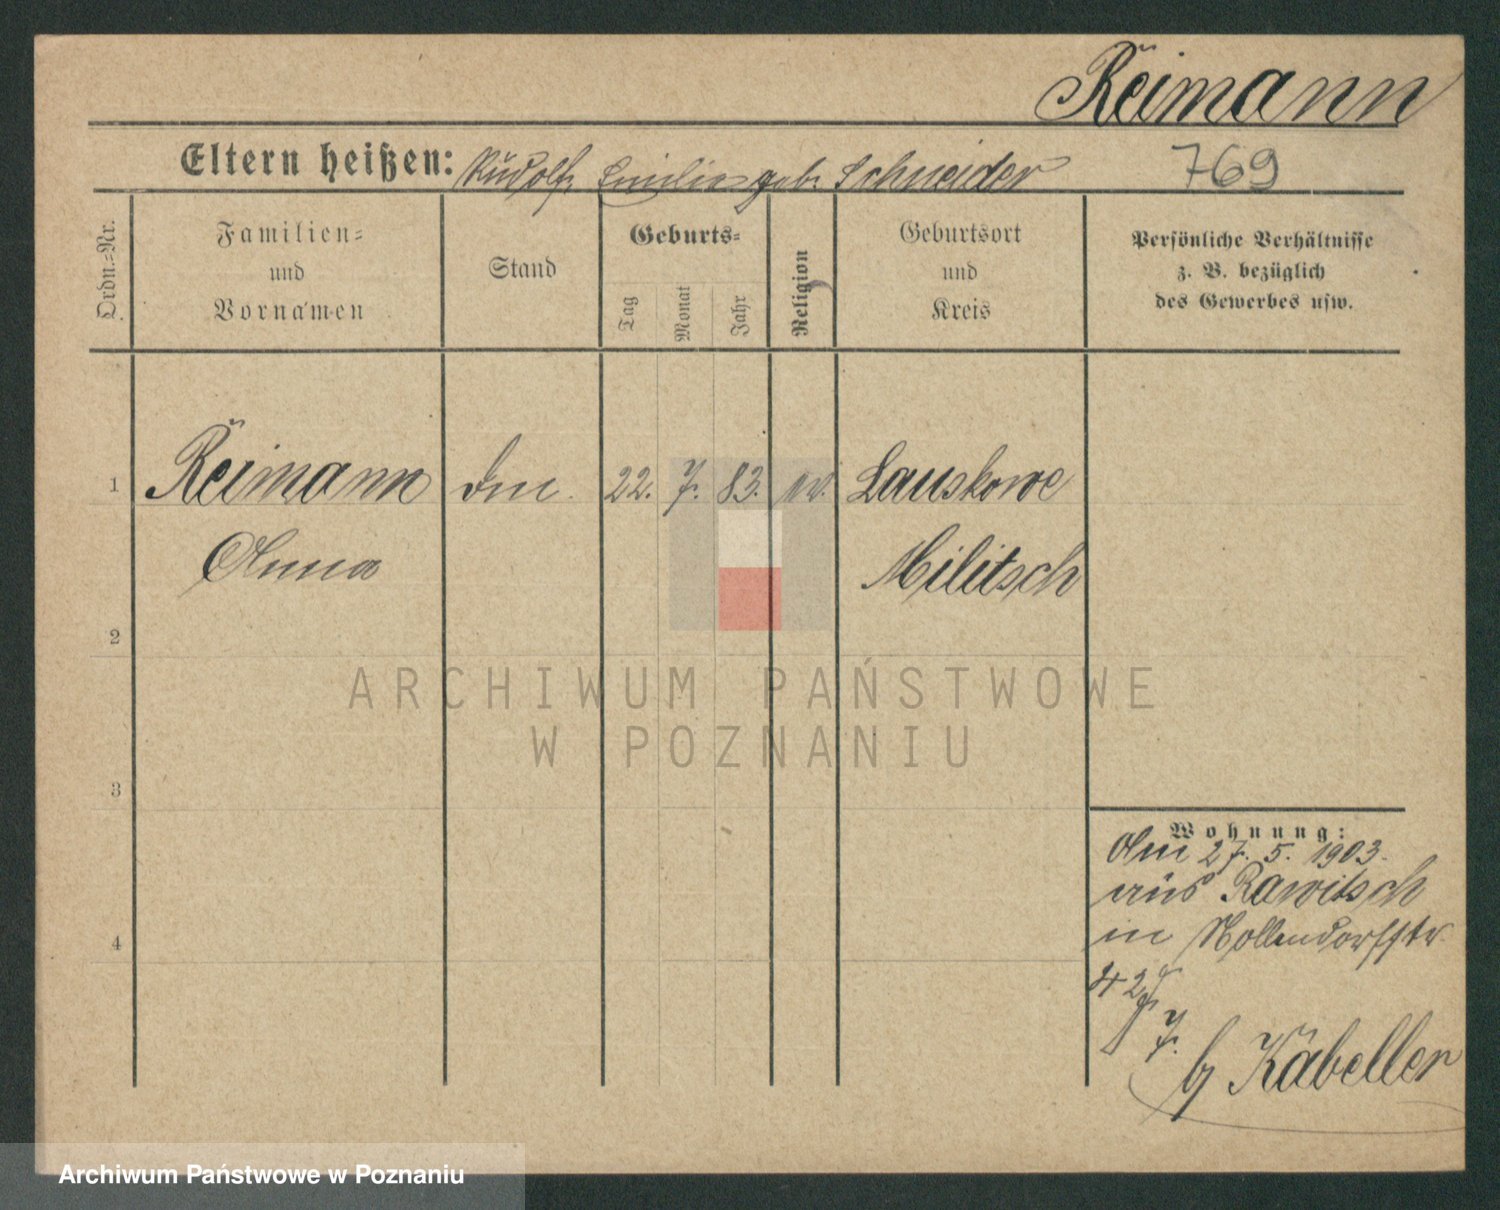 Reimann
Eltern heißen: Rudolf, Emilie geb. Schneider 769
Ordn.-Nr.
Familien-
und
Vornamen
Stand
Geburts-
Tag
Monat
Jahr
Religion
Geburtsort
und
Kreis
Persönliche Verhältnisse
z. B. bezüglich
des Gewerbes usw.
1 Reimann 22. 7. 83. ev. Lauskowe
Anna Militsch
2
3
4
Wohnung:
Am 27. 5. 1903.
aus Rawitsch
in Nollendorfstr.
42
b/ Käbeller
ARCHIWUM PAŃSTWOWE
W POZNANIU
Archiwum Państwowe w Poznaniu